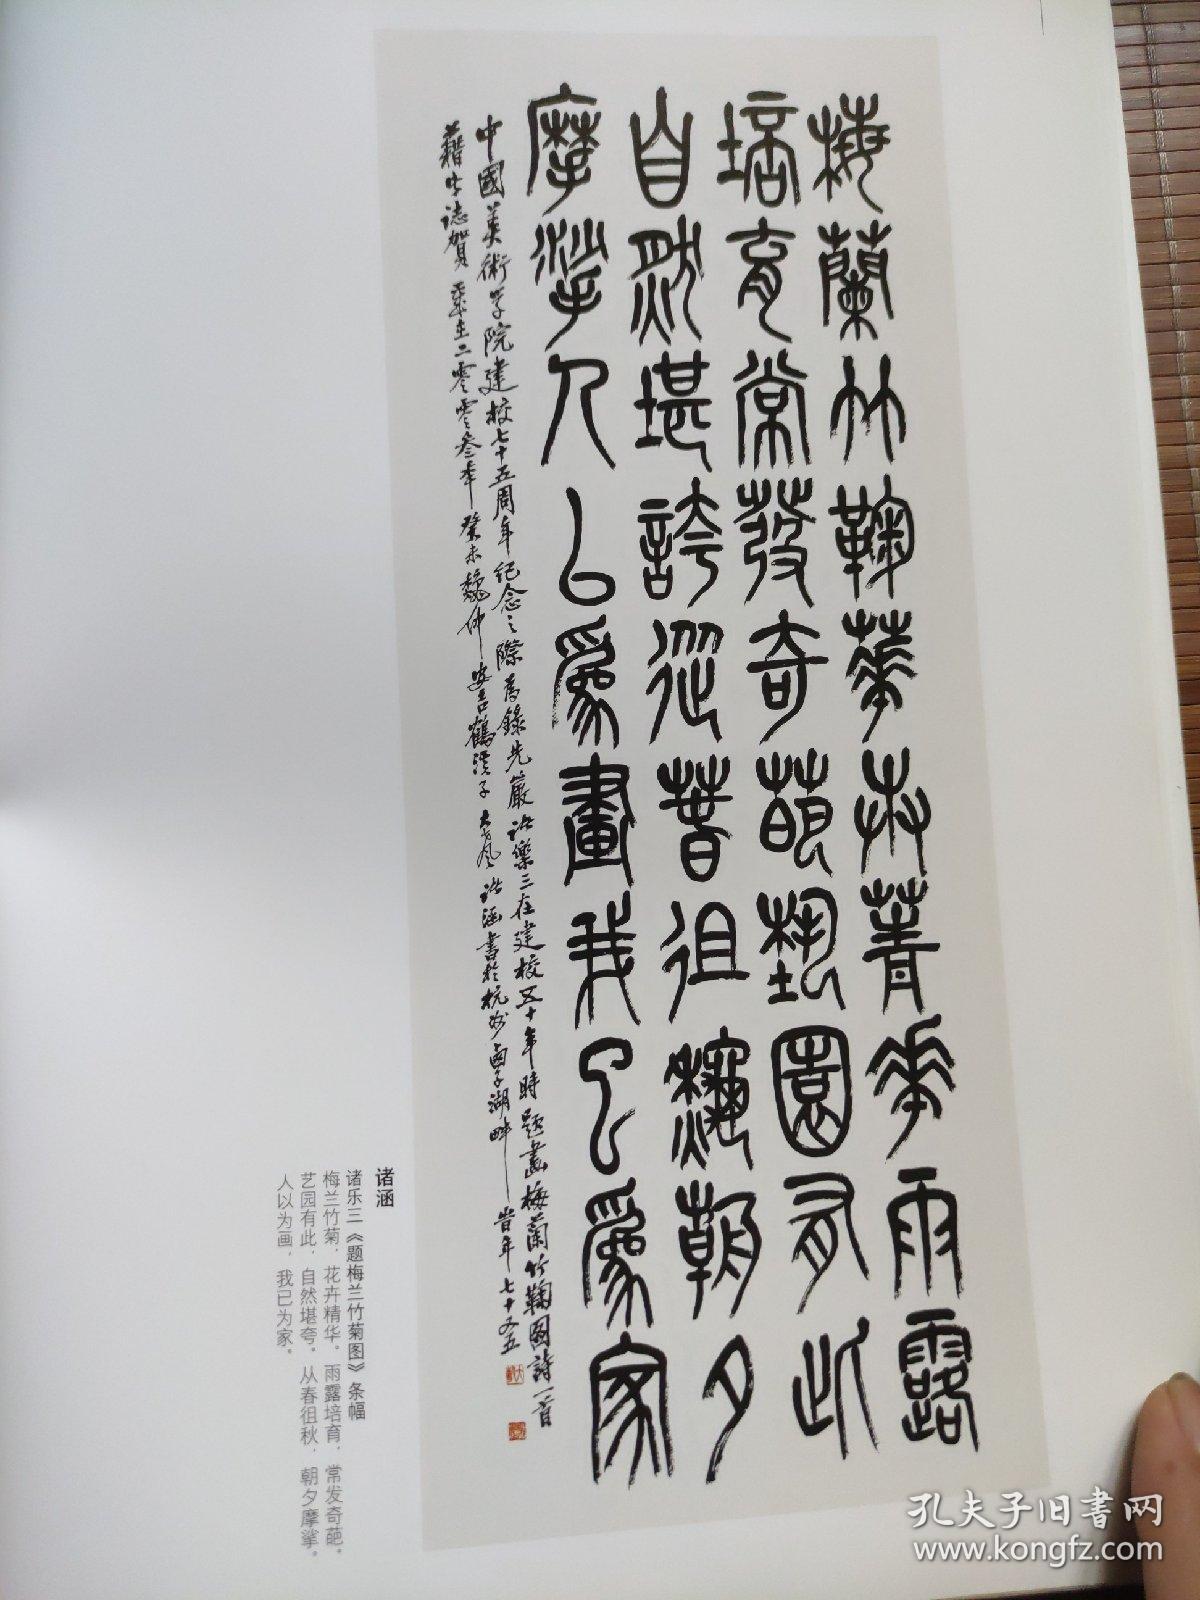 梅蘭竹鞠華卉菁華雨露
培育常發奇葩藝園有此
自然堪誇從春徂穐朝夕
摩挲人以為畫我已為家
中國美術學院建校七十五周年紀念之際為錄先嚴諸樂三在建校五十年時題畫梅蘭竹鞠圖詩一首
藉此誌賀 歲在二零零叁年癸未魏仲安吉鶴溪子大風諸涵書於杭州西子湖畔 昔年七十又五
诸涵
诸乐三《题梅兰竹菊图》条幅
梅兰竹菊，花卉精华。雨露培育，常发奇葩。
艺园有此，自然堪夸。从春徂秋，朝夕摩挲。
人以为画，我已为家。
孔夫子旧书网
www.kongfz.com